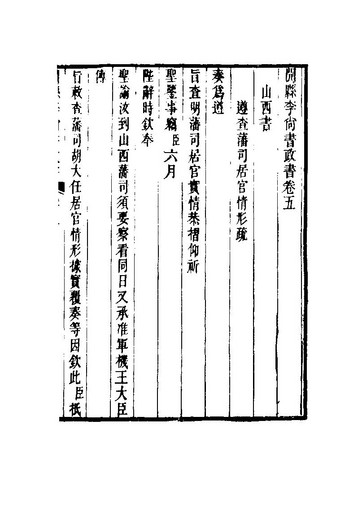 開縣李尚書政書卷五
山西書
遵查藩司居官情形疏
奏爲遵
旨查明藩司居官實情恭摺仰祈
聖鑒事竊臣六月
陛辭時欽奉
聖諭汝到山西藩司須要察看同日又承准軍機王大臣
傳
旨敕查藩司胡大任居官情形據實覆奏等因欽此臣祇